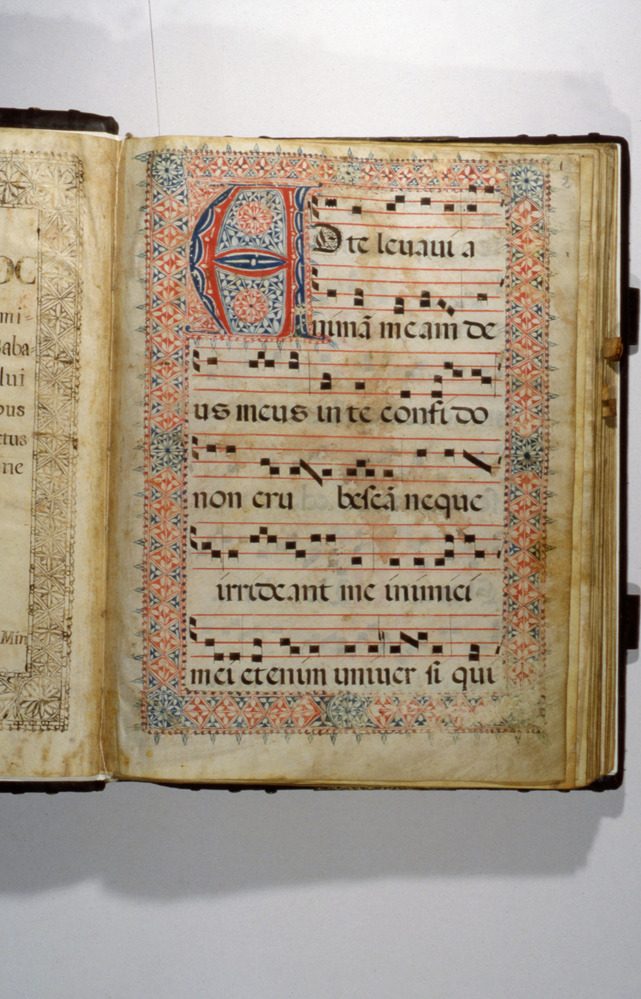 OC
mi-
Saba
lui
ous
ctus
ne
Min
2
AD te leuaui a
nimā meam de
us meus in te confido
non eru bescā neque
irrideant me inimici
mei etenim uniuer si qui